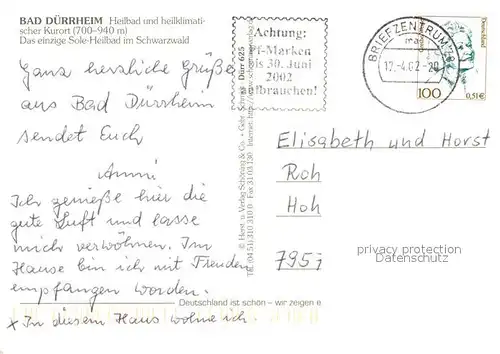 BAD DÜRRHEIM Heilbad und heilklimati-
scher Kurort (700–940 m)
Das einzige Sole-Heilbad im Schwarzwald
Achtung:
Pf-Marken
bis 30. Juni
2002
aufbrauchen!
BRIEFZENTRUM
12.-4.02-20
Deutschland
100
0,51€
Ganz herzliche Grüße
aus Bad Dürrheim
sendet Euch
Anni
Ich genieße hier die
gute Luft und lasse
mich verwöhnen. Im
Hause bin ich mit Freuden
empfangen worden.
x In diesem Haus wohne ich
© Horst u. Verlag Schöning & Co. · Gebr. Schmidt
Dürr 625
Tel. (04 51) 310 310 Fax 31 03 130 Internet:
Elisabeth und Horst
Roh
Hoh
7957
privacy protection
Datenschutz
Deutschland ist schön – wir zeigen e